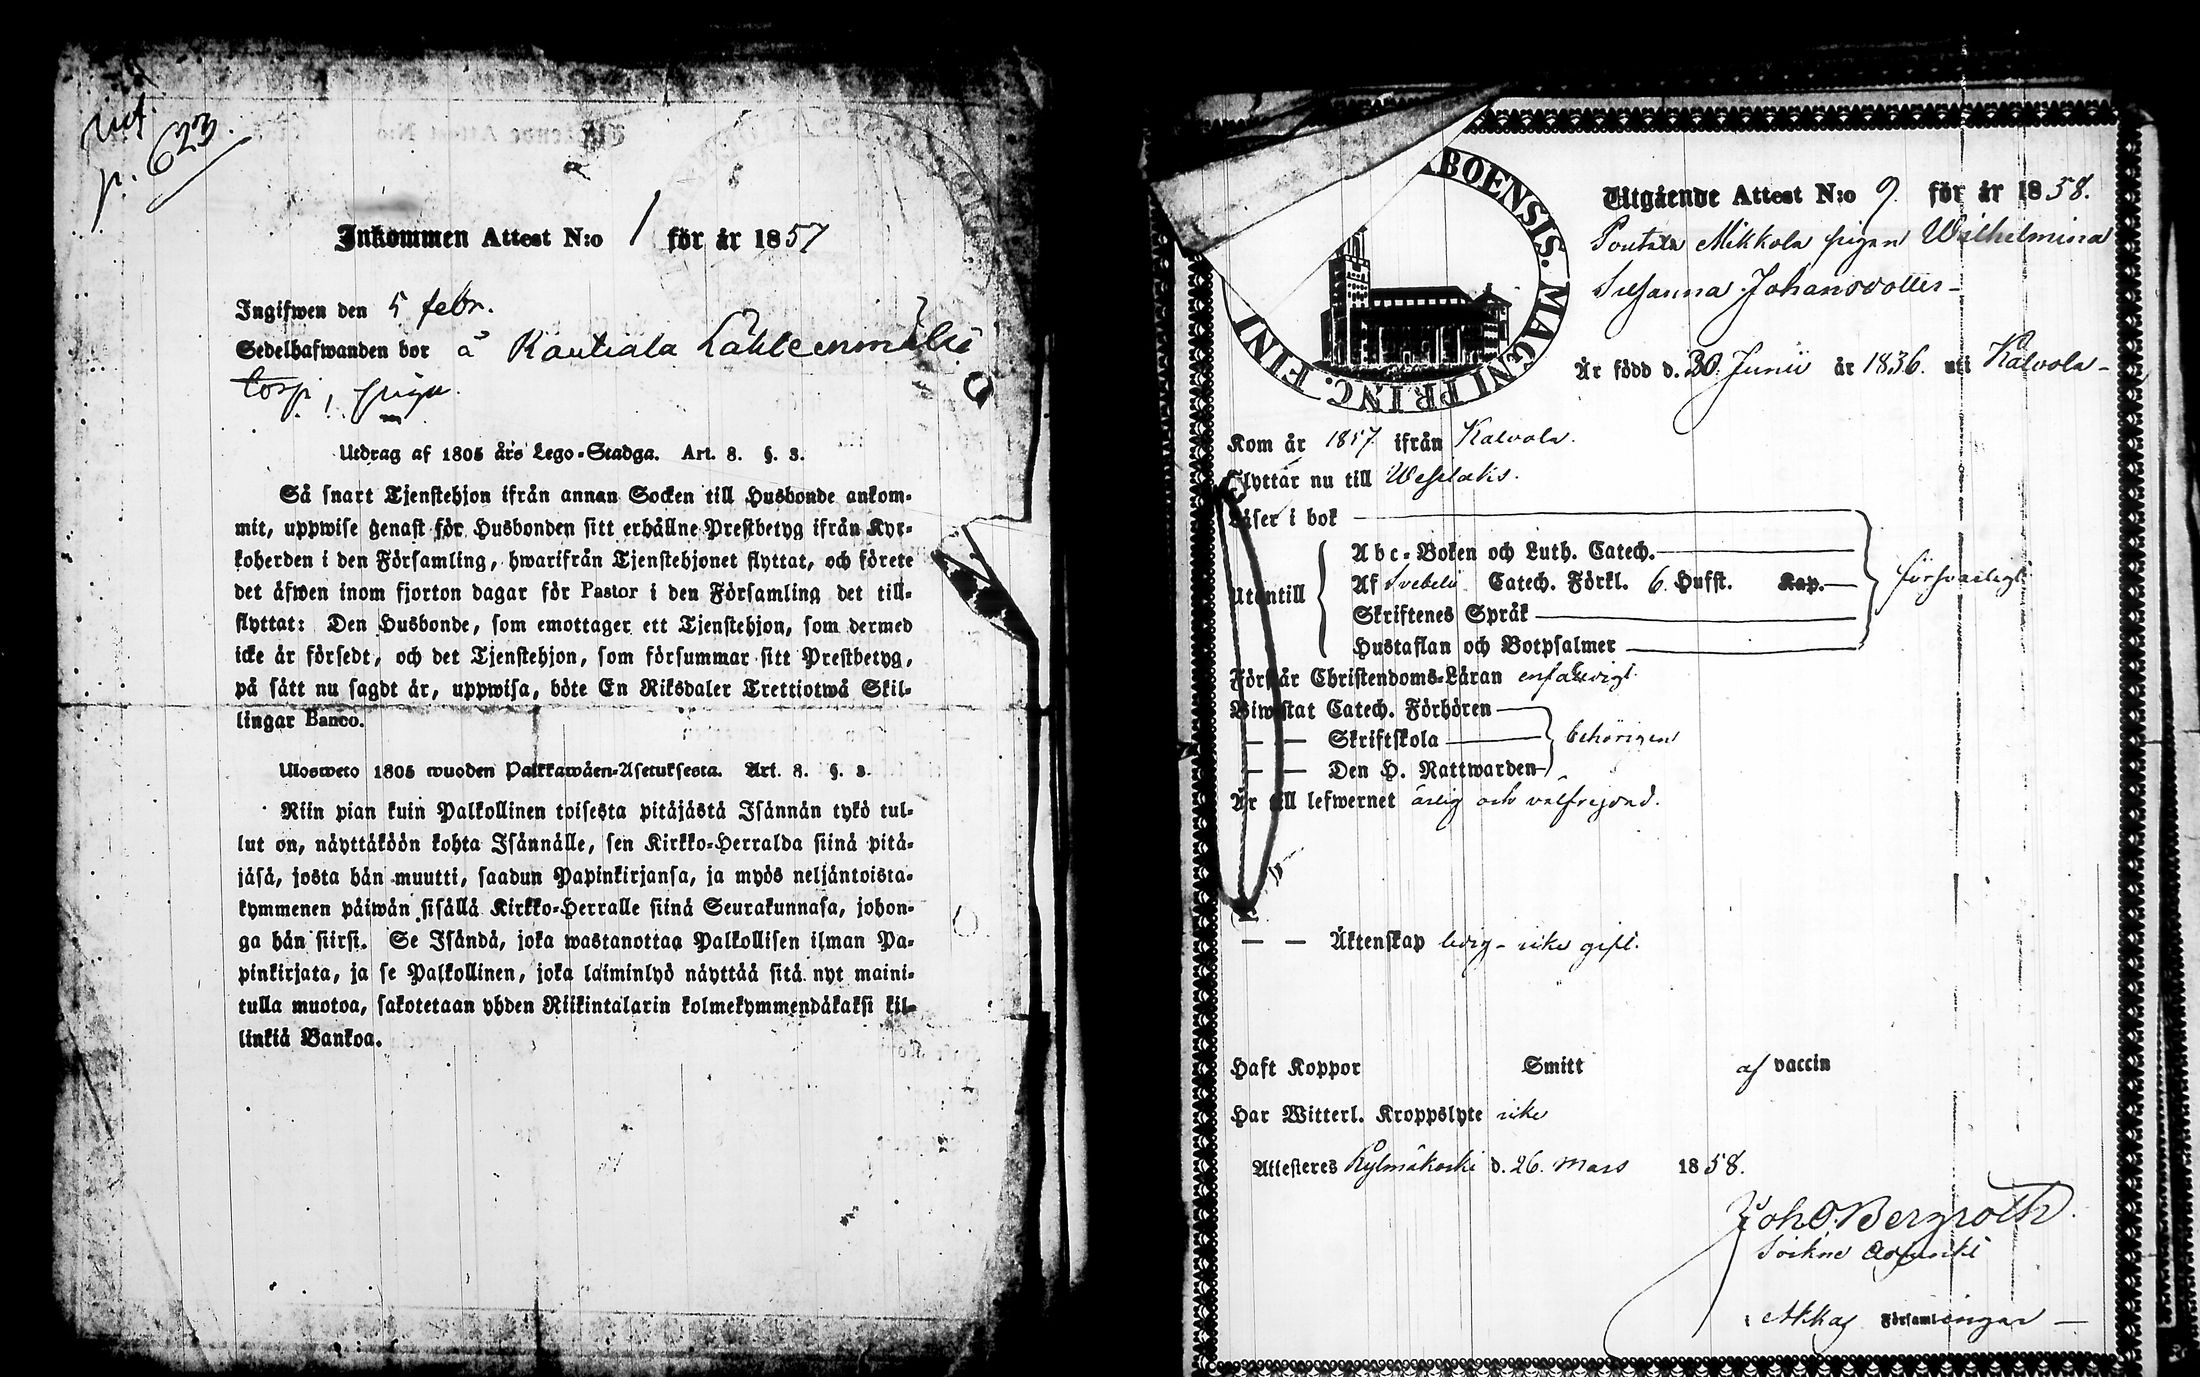 p. 623.
Inkommen Attest N:o 1 för år 1857
Ingifwen den 5 febr.
Sedelhafwanden bor å Kautiala
torp, piga.
Utdrag af 1805 års Lego-Stadga. Art. 8. §. 3.
Så snart Tjenstehjon ifrån annan Socken till Husbonde ankom-
mit, uppwise genast för Husbonden sitt erhållne Prestbetyg ifrån Kyr-
koherden i den Församling, hwarifrån Tjenstehjonet flyttat, och förete
det äfwen inom fjorton dagar för Pastor i den Församling det till-
flyttat: Den Husbonde, som emottager ett Tjenstehjon, som dermed
icke är försedt, och det Tjenstehjon, som försummar sitt Prestbetyg,
på sätt nu sagdt är, uppwisa, böte En Riksdaler Trettiotwå Skil-
lingar Banco.
Ulosweto 1805 wuoden Palkkawäen-Asetuksesta. Art. 8. §. 3.
Niin pian kuin Palkollinen toisesta pitäjästä Isännän tykö tul-
lut on, näyttäköön kohta Isännälle, sen Kirkko-Herralda siinä pitä-
jäsä, josta hän muutti, saadun Papinkirjansa, ja myös neljäntoista-
kymmenen päiwän sisällä Kirkko-Herralle siinä Seurakunnasa, johon-
ga hän siirsi. Se Isändä, joka wastanottaa Palkollisen ilman Pa-
pinkirjata, ja se Palkollinen, joka laiminlyö näyttää sitä nyt maini-
tulla muotoa, sakotetaan yhden Riikintalarin kolmekymmendäkaksi kil-
linkiä Bankoa.
BOENSIS. MAGNI PRINC. FINL
Utgående Attest N:o 9. för år 1858.
Poutala Mikkola pigan Wilhelmina
Susanna Johansdotter
Är född d. 30. Junii år 1836. uti Kalvola
Kom år 1857 ifrån Kalvola.
Flyttar nu till Wesilaks.
Läser i bok
Utantill
Abc-Boken och Luth. Catech.
Af Svebelii Catech. Förkl. 6. Hufst. Kap.
Skriftenes Språk
Hustaflan och Botpsalmer
försvarligt
Förstår Christendoms-Läran enfaldigt
Biwistat Catech. Förhören
— — Skriftskola
— — Den H. Nattwarden
behörigen
Är till lefwernet ärlig och välfrejdad.
— — Äktenskap ledig - icke gift.
Haft Koppor Smitt af vaccin
Har Witterl. Kroppslyte icke
Attesteres Kylmäkoski d. 26. Mars 1858.
Joh O. Bergroth.
Sockne Adjunct
i Akkas Församlingar